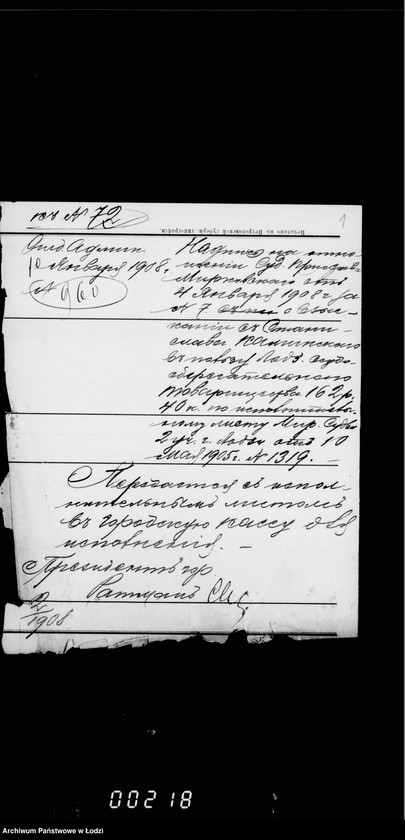 къ № 72
1
Печатано въ Петроковской губерн. типографіи.
Отд. Админ.
10 Января 1908 г.
№ 960
Надпись на отно-
шеніи Суд. Пристава
отъ
4 Января 1908 г. за
№ 7 о взыс-
каніи съ Стани-
слава Калинскаго
въ пользу Лодз. ссудо-
сберегательнаго
товарищества 162 р.
40 к. по исполнитель-
ному листу Мир. Судьи
2 уч. г. Лодзи отъ 10
мая 1905 г. № 1319.
Передается съ испол-
нительнымъ листомъ
въ городскую кассу для
исполненія.
Президентъ гор.
Ратманъ
2
1908
00218
Archiwum Państwowe w Łodzi